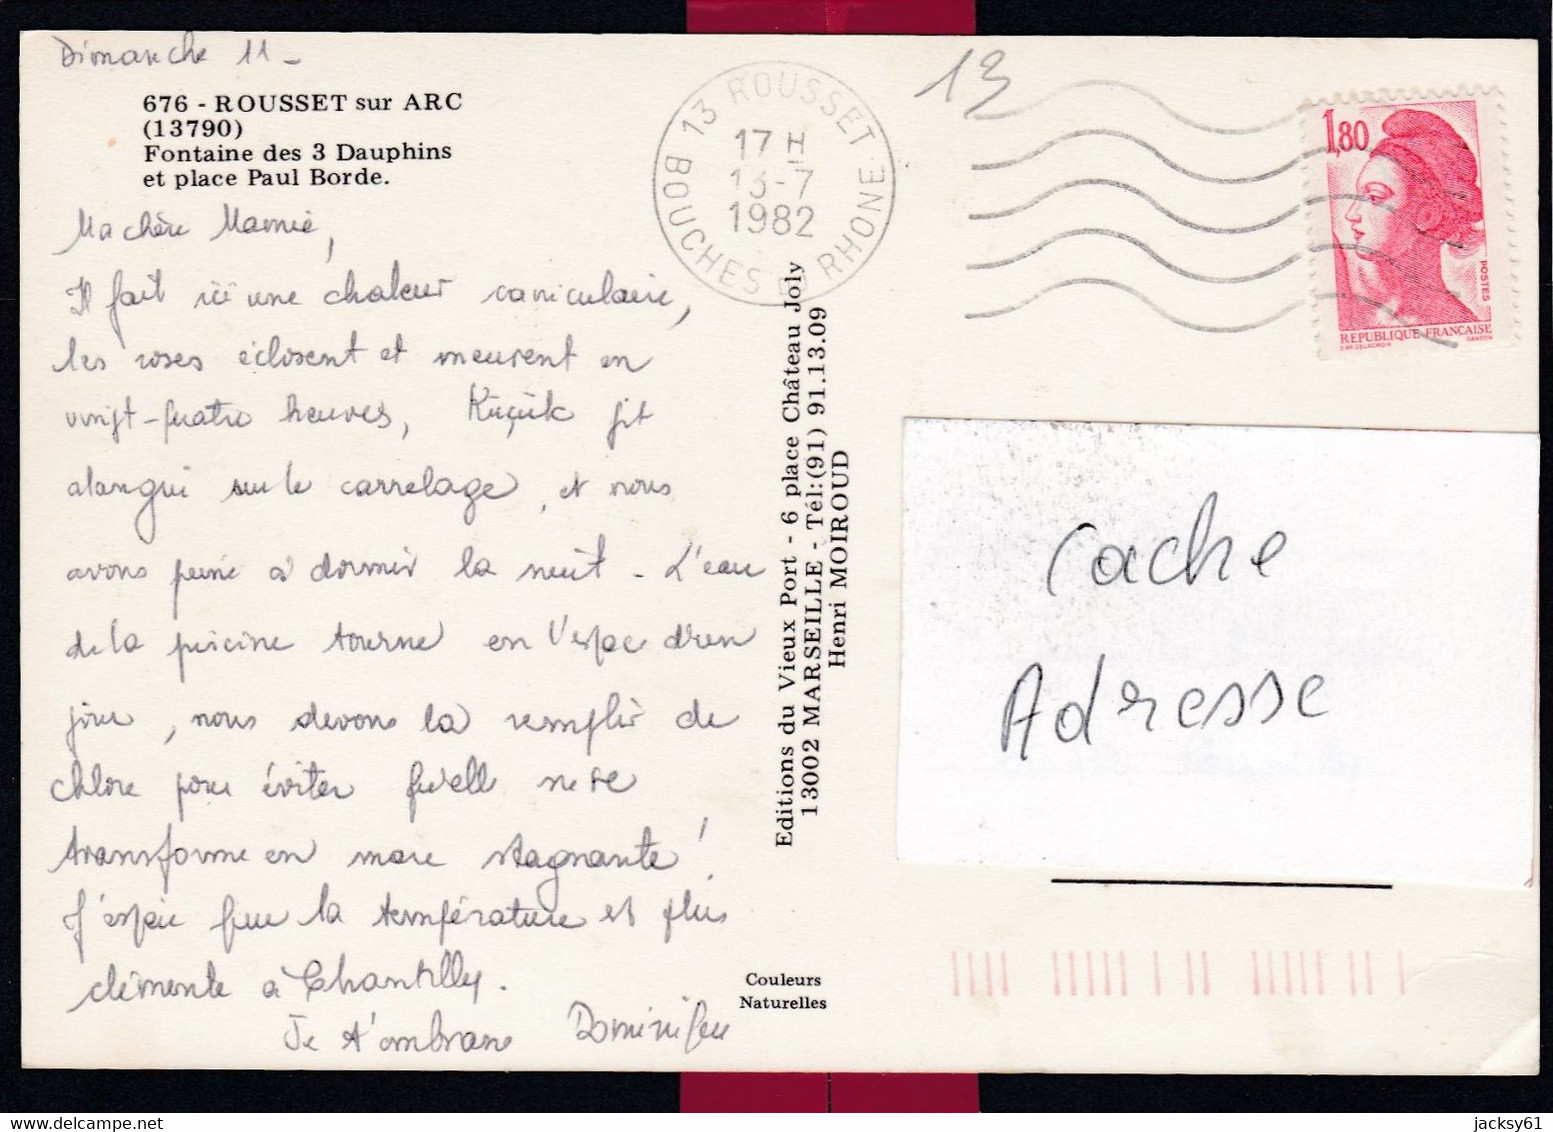 Dimanche 11 -
676 - ROUSSET sur ARC
(13790)
Fontaine des 3 Dauphins
et place Paul Borde.
Ma chère Mamie,
Il fait ici une chaleur caniculaire,
les roses éclosent et meurent en
vingt-quatre heures, Küçük gît
alangui sur le carrelage, et nous
avons peine à dormir la nuit - L'eau
de la piscine tourne en l'espace d'un
jour, nous devons la remplir de
chlore pour éviter qu'elle ne se
transforme en mare stagnante !
J'espère que la température est plus
clémente à Chantilly.
Je t'embrasse Dominique
Couleurs
Naturelles
Editions du Vieux Port - 6 place Château Joly
13002 MARSEILLE - Tél:(91) 91.13.09
Henri MOIROUD
13 ROUSSET
17 H
13-7
1982
BOUCHES D RHONE
13
1,80
POSTES
REPUBLIQUE FRANÇAISE
D'AP. DELACROIX GANDON
Cache
Adresse
jacksy61